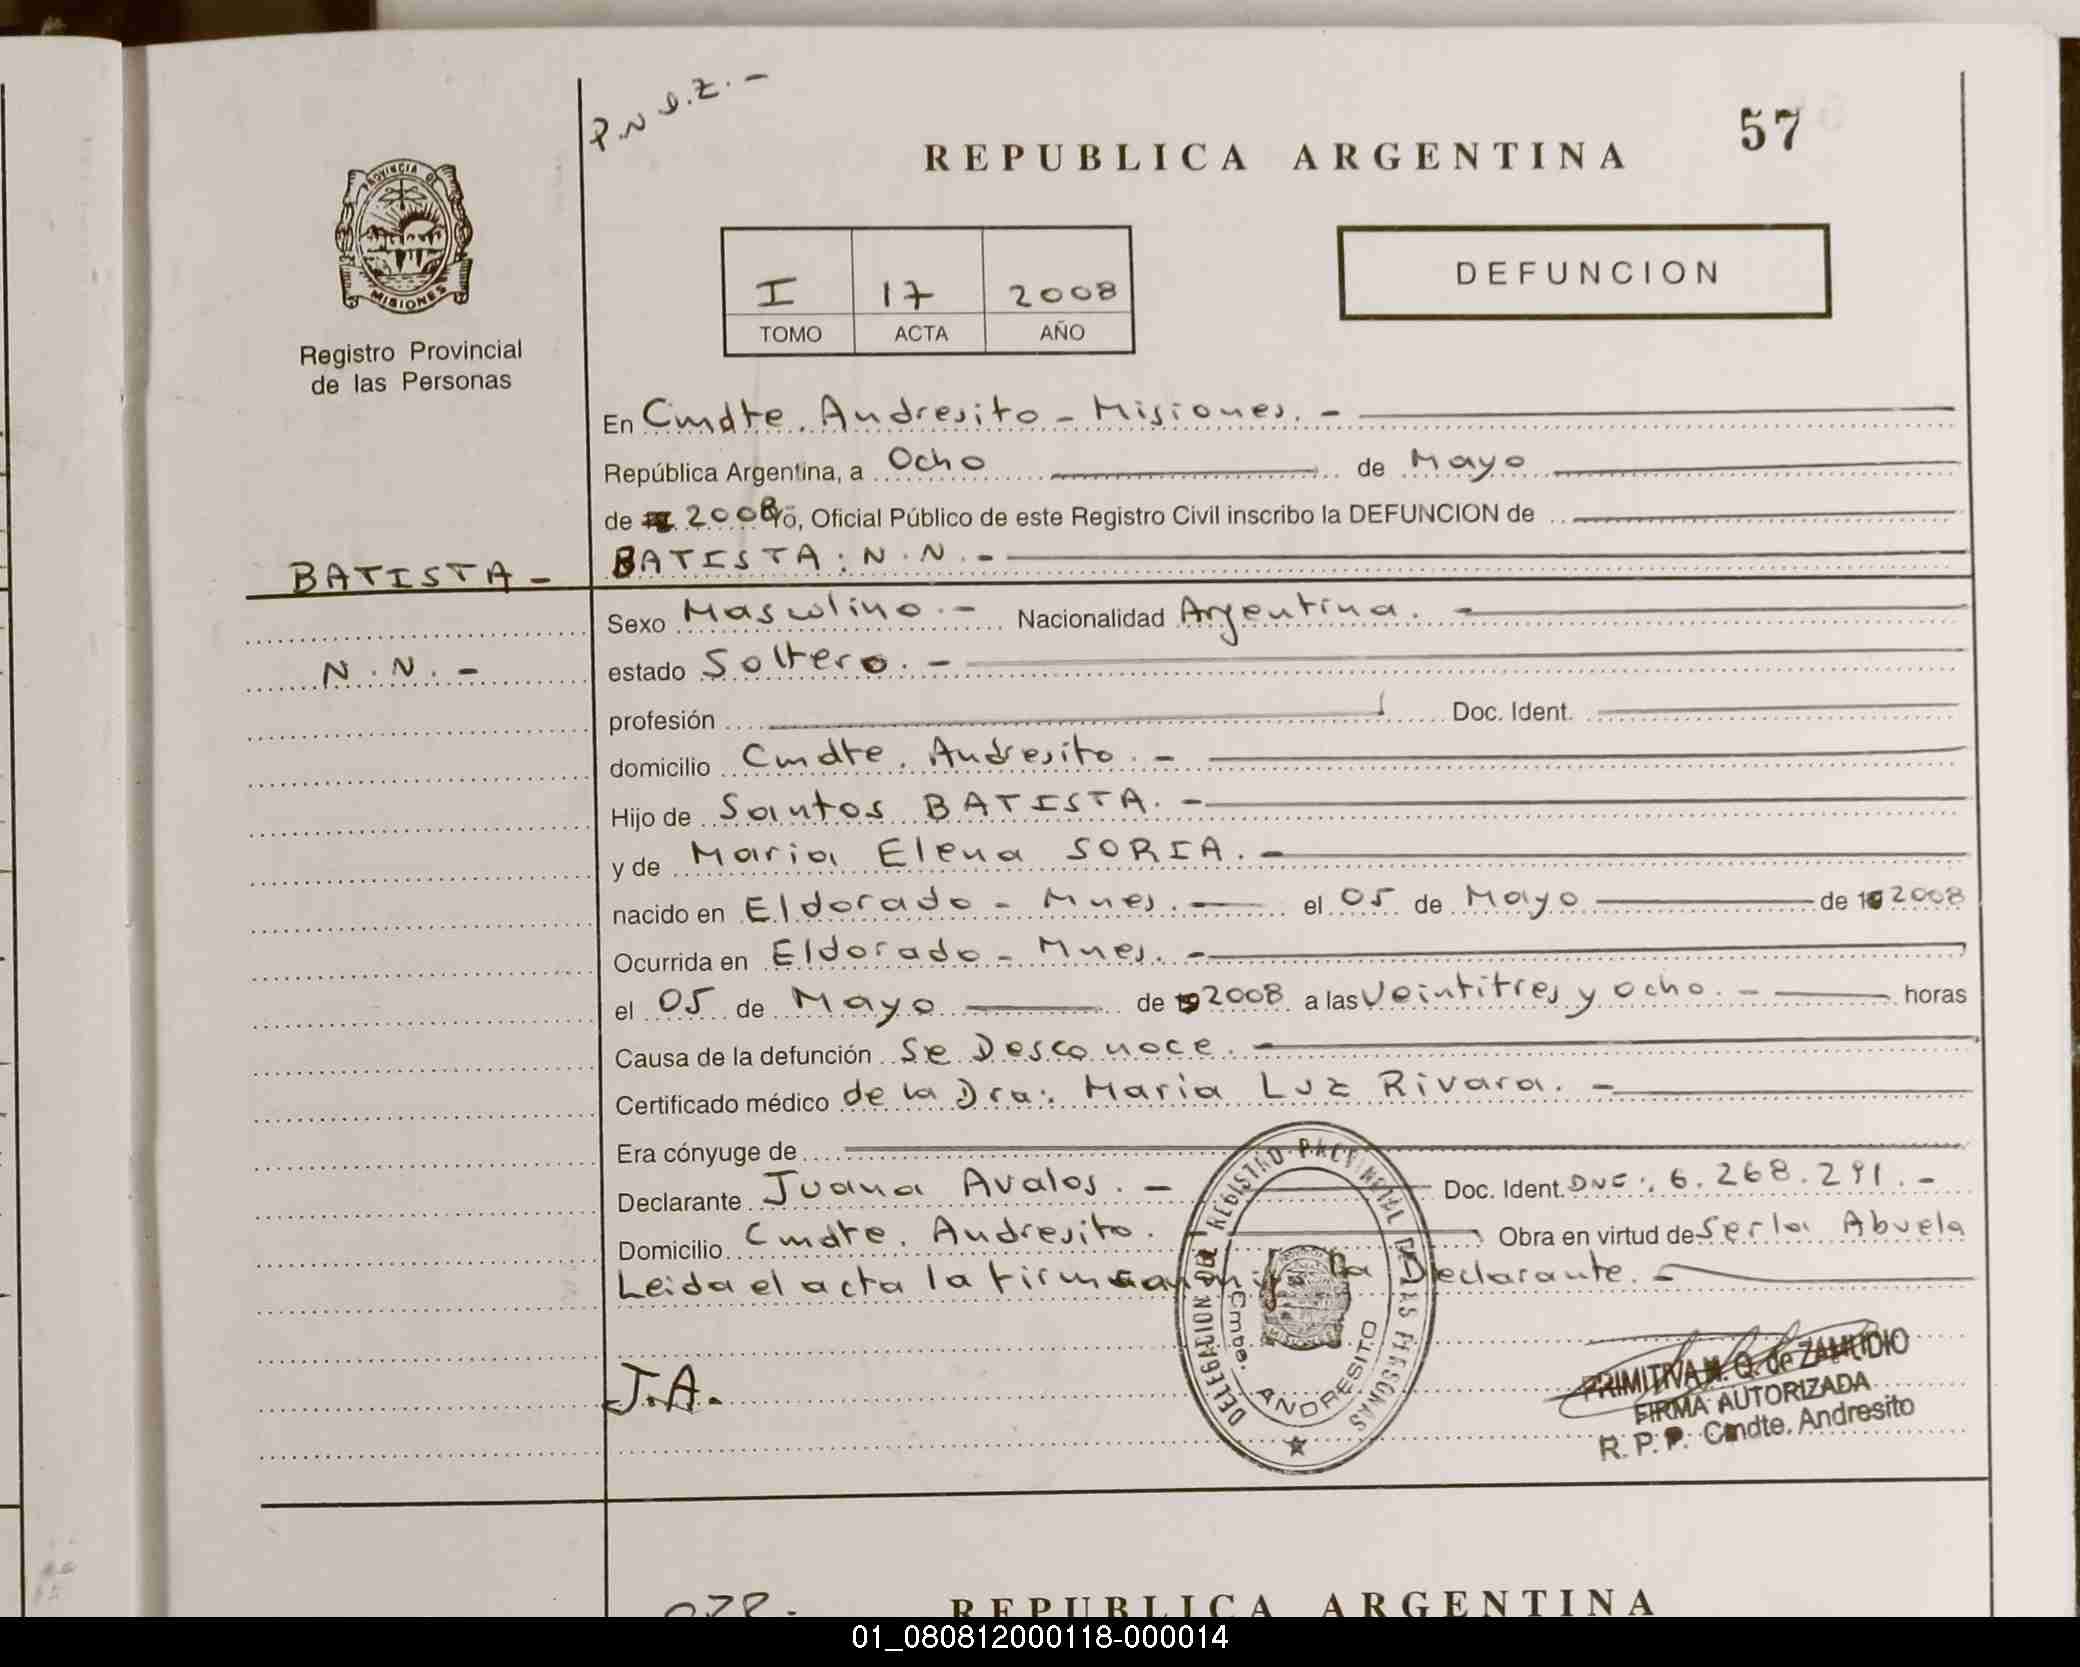 P.N.I.Z.-
REPUBLICA ARGENTINA
57
PROVINCIA DE
MISIONES
I 17 2008
TOMO ACTA AÑO
DEFUNCION
Registro Provincial
de las Personas
En Cmdte. Andresito - Misiones.-
República Argentina, a Ocho de Mayo
de 2008 Yo, Oficial Público de este Registro Civil inscribo la DEFUNCION de
BATISTA - BATISTA: N.N.-
Sexo Masculino.- Nacionalidad Argentina.-
N.N.- estado Soltero.-
profesión Doc. Ident.
domicilio Cmdte. Andresito.-
Hijo de Santos BATISTA.-
y de Maria Elena SORIA.-
nacido en Eldorado - Mnes.- el 05 de Mayo de 2008
Ocurrida en Eldorado - Mnes.-
el 05 de Mayo de 2008 a las Veintitres y ocho.- horas
Causa de la defunción Se Desconoce.-
Certificado médico de la Dra: Maria Luz Rivara.-
Era cónyuge de
Declarante Juana Avalos.- Doc. Ident. DNC: 6.268.291.-
Domicilio Cmdte. Andresito. Obra en virtud de Ser la Abuela
Leida el acta la firman conmigo La Declarante.-
DELEGACION DEL REGISTRO PROVINCIAL DE LAS PERSONAS
Cmde. ANDRESITO
J.A.
PRIMITIVA M. Q. de ZAMUDIO
FIRMA AUTORIZADA
R. P. P. Cmdte. Andresito
REPUBLICA ARGENTINA
01_080812000118-000014